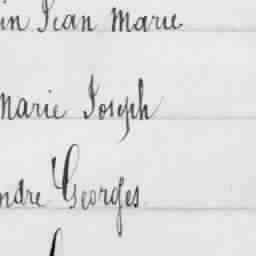 in Jean Marie
Marie Joseph
ndre Georges